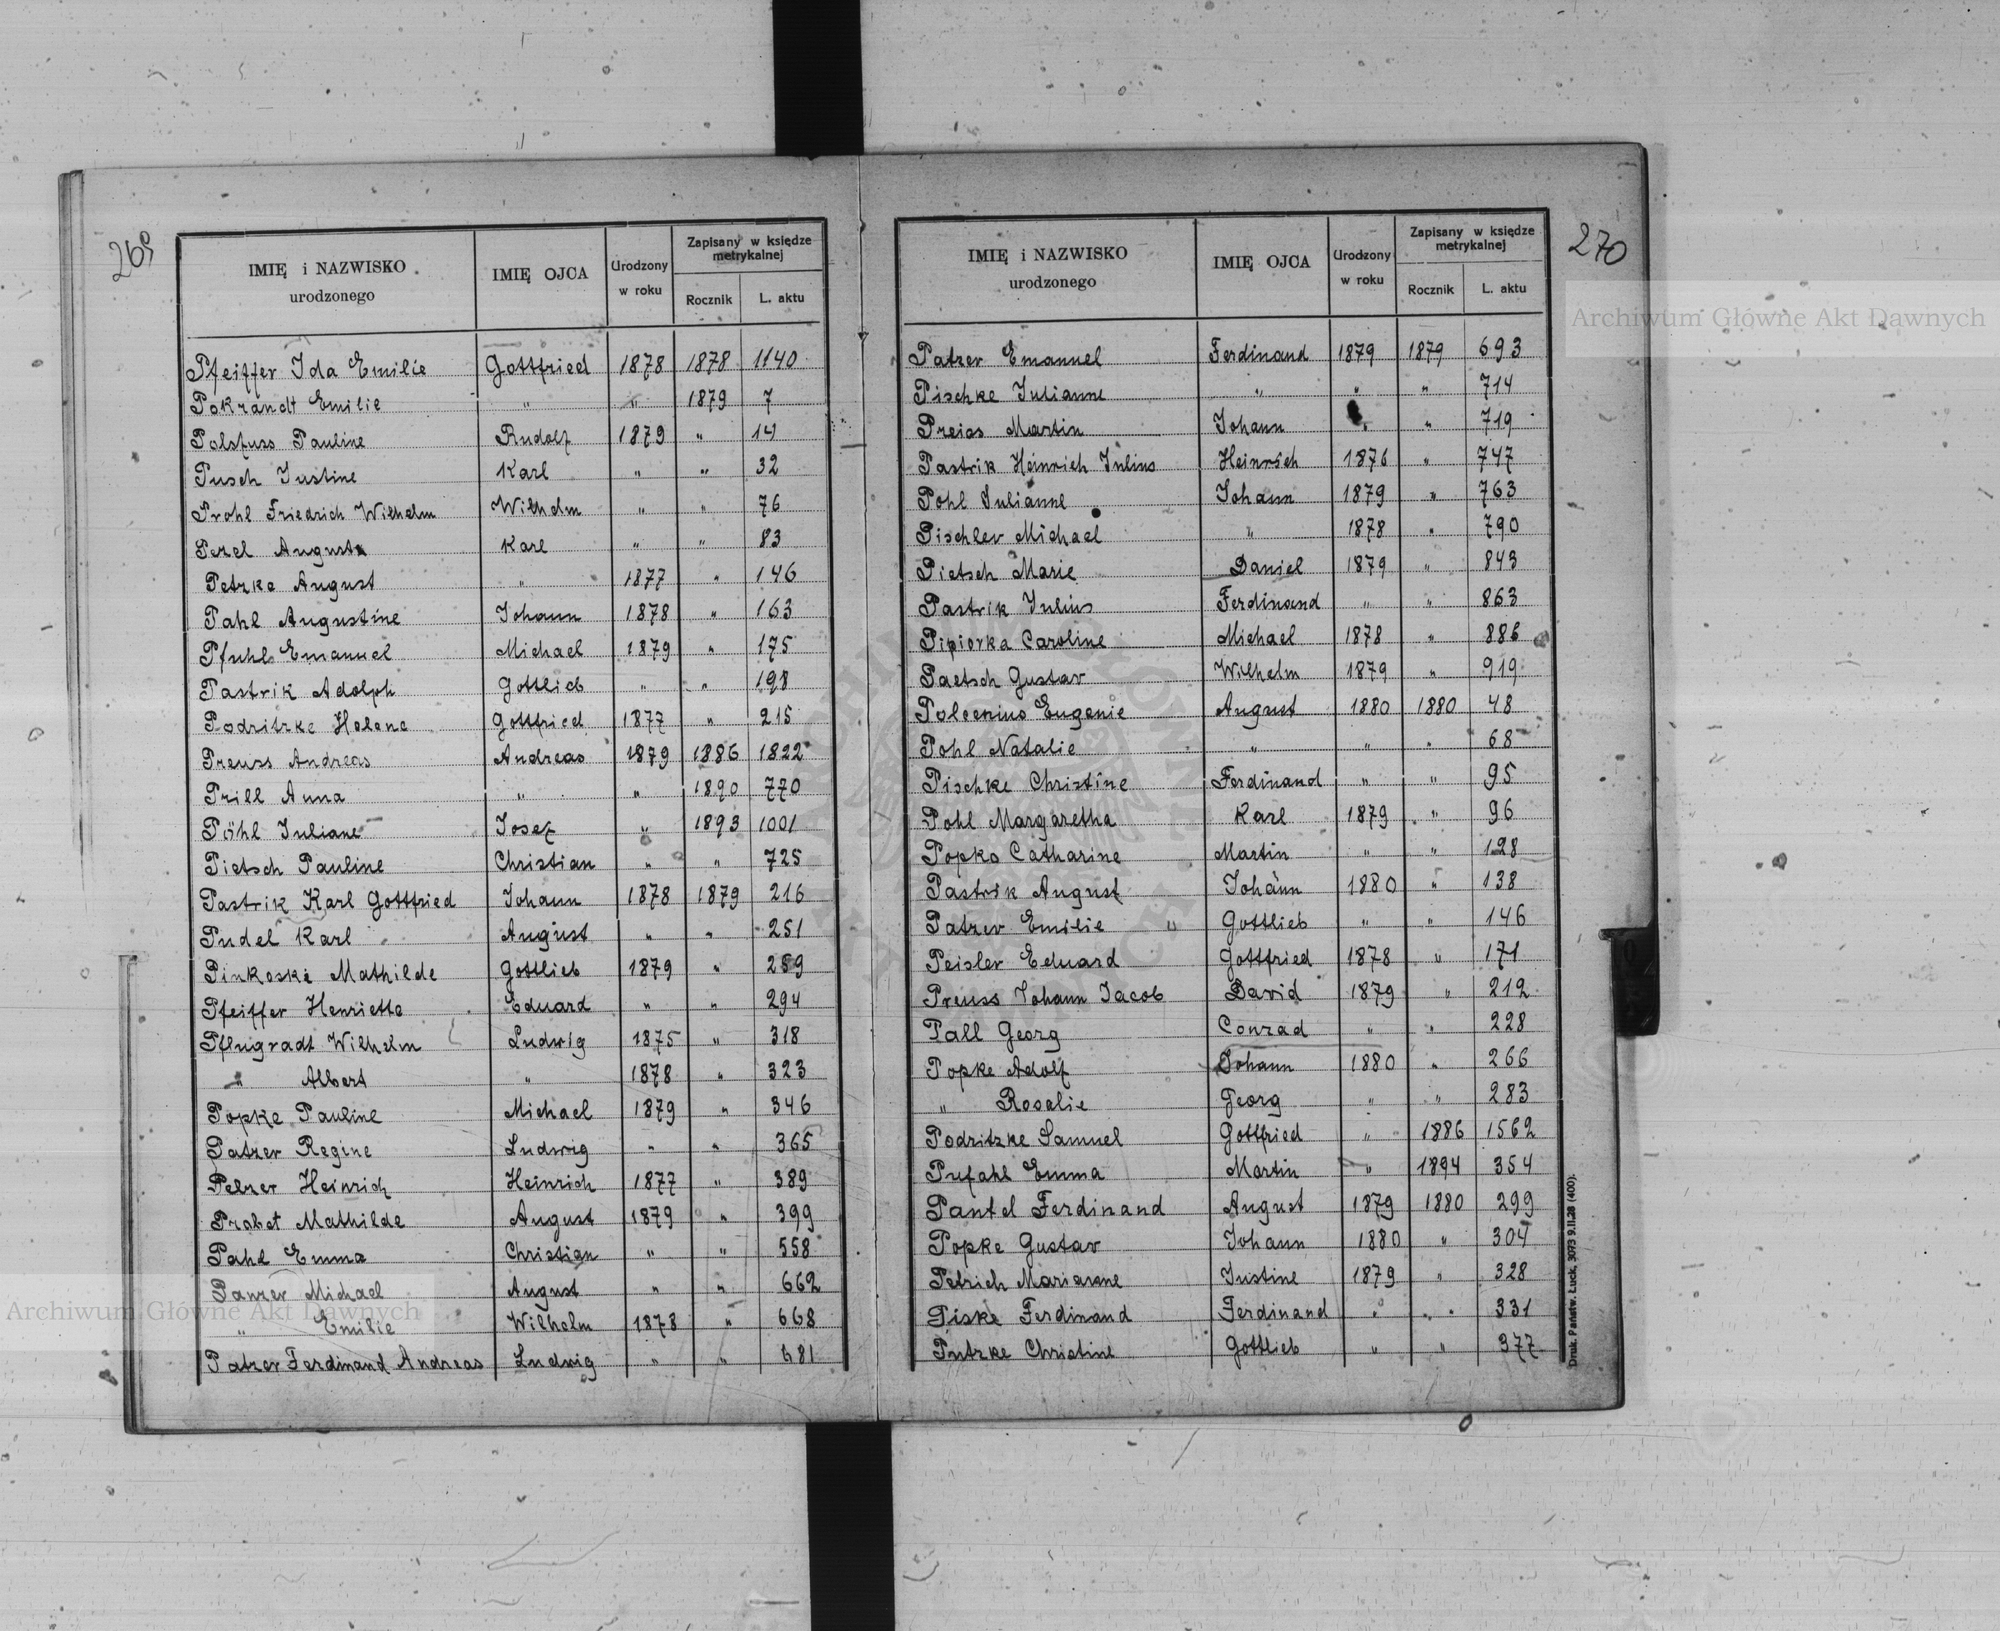 269
IMIĘ i NAZWISKO urodzonego | IMIĘ OJCA | Urodzony w roku | Zapisany w księdze metrykalnej
Rocznik | L. aktu
Pfeiffer Ida Emilie Gottfried 1878 1878 1140
Pokrandt Emilie " " 1879 7
Polsfuss Pauline Rudolf 1879 " 14
Pusch Justine Karl " " 32
Prohl Friedrich Wilhelm Wilhelm " " 76
August Karl " " 83
Petzke August " 1877 " 146
Pahl Augustine Johann 1878 " 163
Pfuhl Emanuel Michael 1879 " 175
Pastrik Adolph Gottlieb " " 198
Podzitzke Helene Gottfried 1877 " 215
Preuss Andreas Andreas 1879 1886 1822
Prill Anna " " 1890 770
Pöhl Juliane Josef " 1893 1001
Pietsch Pauline Christian " " 725
Pastrik Karl Gottfried Johann 1878 1879 216
Pudel Karl August " " 251
Pinkoske Mathilde Gottlieb 1879 " 289
Pfeiffer Henriette Eduard " " 294
Pflugradt Wilhelm Ludwig 1875 " 318
" Albert " 1878 " 323
Popke Pauline Michael 1879 " 346
Patzer Regine Ludwig " " 365
Pelzer Heinrich Heinrich 1877 " 389
Probst Mathilde August 1879 " 399
Pahl Emma Christian " " 558
Panzer Michael August " " 662
" Emilie Wilhelm 1878 " 668
Patzer Ferdinand Andreas Ludwig " " 681
270
IMIĘ i NAZWISKO urodzonego | IMIĘ OJCA | Urodzony w roku | Zapisany w księdze metrykalnej
Rocznik | L. aktu
Patzer Emanuel Ferdinand 1879 1879 693
Pischke Julianne " " " 714
Preiss Martin Johann " " 719
Pastrik Heinrich Julius Heinrich 1876 " 747
Pohl Julianne Johann 1879 " 763
Pischler Michael " 1878 " 790
Pietsch Marie Daniel 1879 " 843
Pastrik Julius Ferdinand " " 863
Pipiorka Caroline Michael 1878 " 886
Paetsch Gustav Wilhelm 1879 " 919
Eugenie August 1880 1880 48
Pohl Natalie " " " 68
Pischke Christine Ferdinand " " 95
Pohl Margaretha Karl 1879 " 96
Popko Catharine Martin " " 128
Pastrik August Johann 1880 " 138
Patzer Emilie Gottlieb " " 146
Peisler Eduard Gottfried 1878 " 171
Preuss Johann Jacob David 1879 " 212
Pall Georg Conrad " " 228
Popke Adolf Johann 1880 " 266
" Rosalie Georg " " 283
Podzitzke Samuel Gottfried " 1886 1562
Pufahl Emma Martin " 1894 354
Pantel Ferdinand August 1879 1880 299
Popke Gustav Johann 1880 " 304
Petrich Marianne Justine 1879 " 328
Piske Ferdinand Ferdinand " " 331
Putzke Christine Gottlieb " " 377
Druk. Państw. Łuck, 3073 9.II.28 (400).
Archiwum Główne Akt Dawnych
Archiwum Główne Akt Dawnych